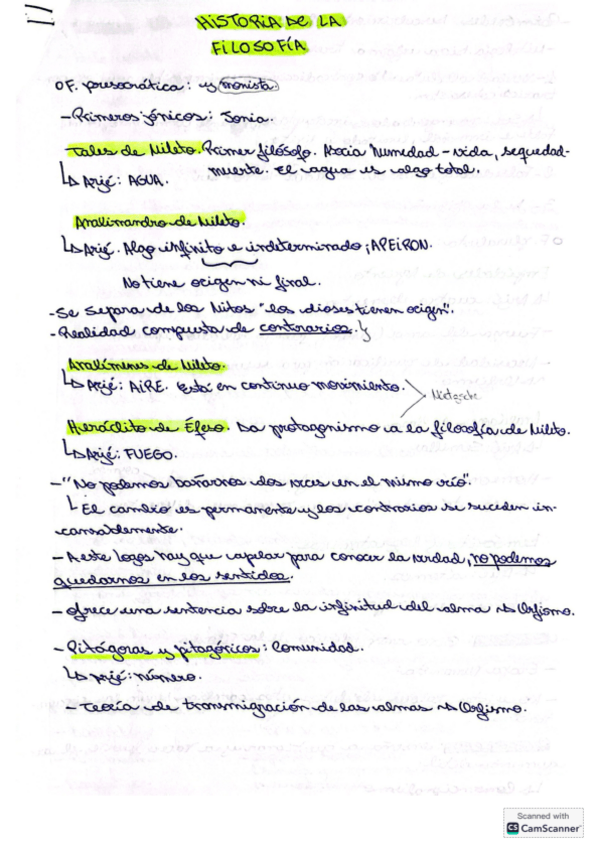 HISTORIA DE LA
FILOSOFÍA
O F. presocrática: y monista
- Primeros jónicos: Jonia
- Tales de Mileto. Primer filósofo. Asocia humedad - vida, sequedad-
muerte. El agua es algo total.
↳ Arjé: AGUA.
Anaximandro de Mileto.
↳ Arjé. Algo infinito e indeterminado; APEIRON.
No tiene origen ni final.
- Se separa de los Mitos "los dioses tienen origen".
- Realidad compuesta de contrarios.
Anaxímenes de Mileto.
↳ Arjé: AIRE. Está en continuo movimiento.
Nietzsche
Heráclito de Éfeso. Da protagonismo a la filosofía de Mileto.
↳ Arjé: FUEGO.
- "No podemos bañarnos dos veces en el mismo río".
↳ El cambio es permanente y los contrarios se suceden in-
cansablemente.
- A este logos hay que capelar para conocer la verdad, no podemos
quedarnos en los sentidos.
- Ofrece una sentencia sobre la infinitud del alma → Orfismo.
- Pitágoras y pitagóricos: Comunidad.
↳ Arjé: número.
- Teoría de transmigración de las almas → Orfismo.
Scanned with
CS CamScanner